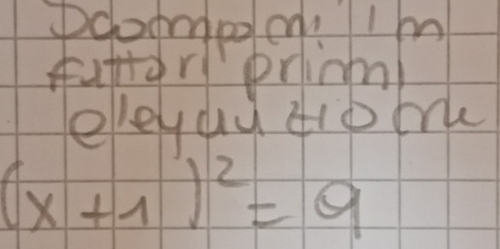 Scomponi in
fattori primi
elequazione
(x+1)² = 9